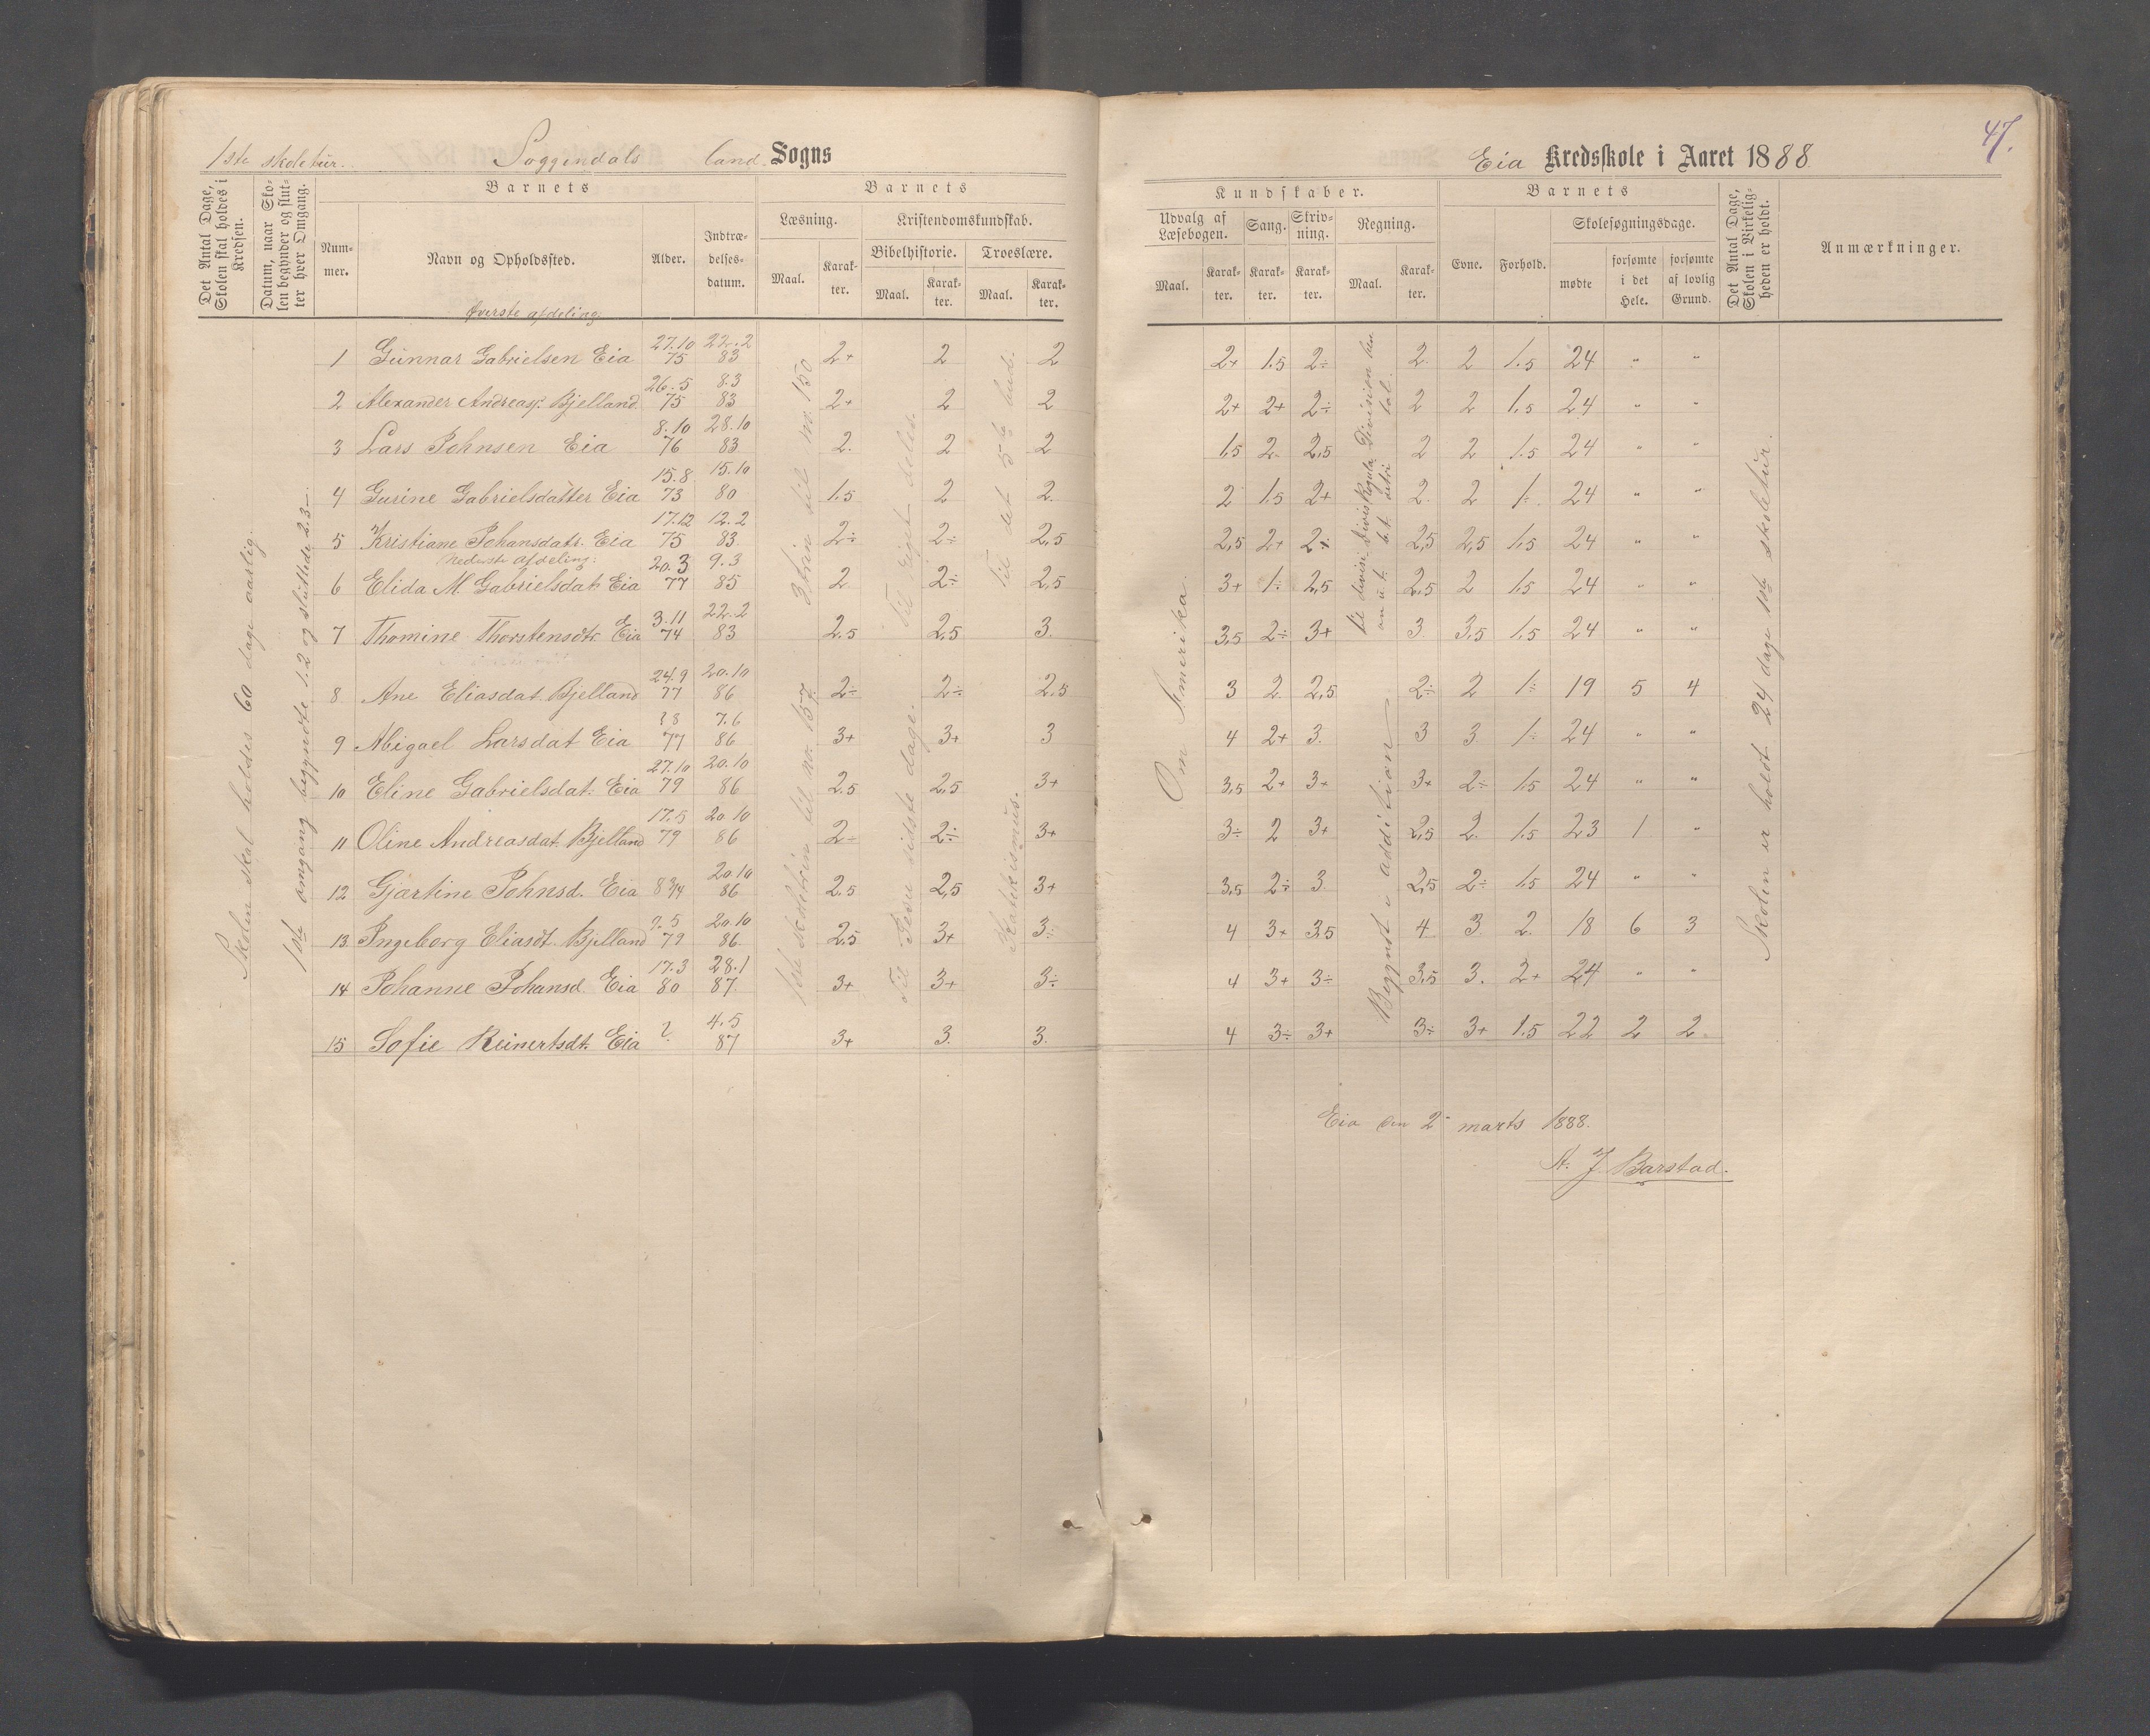 1ste skoletur. Soggendals land. Sogns
Det Antal Dage, Skolen skal holdes i Kredsen.
Datum, naar Skolen begynder og slutter hver Omgang.
Barnets
Nummer.
Navn og Opholdssted.
Alder.
Indtrædelsesdatum.
Barnets
Læsning.
Kristendomskundskab.
Bibelhistorie. Troeslære.
Maal. Karakter. Maal. Karakter. Maal. Karakter.
Øverste afdeling
1 Gunnar Gabrielsen Eia 27.10 75 22.2 83 2+ 2 2
2 Alexander Andreass. Bjelland 26.5 75 8.3 83 2+ 2 2
3 Lars Johnsen Eia 8.10 76 28.10 83 2. 2 2
4 Gurine Gabrielsdatter Eia 15.8 73 15.10 80 1.5 2 2.
5 Kristiane Johansdatr. Eia 17.12 75 12.2 83. 2÷ 2÷ 2,5
Nederste afdeling.
6 Elida M. Gabrielsdat. Eia 20.3 77 9.3 85 2 2÷ 2,5
7 Thomine Thorstensdtr. Eia 3.11 74 22.2 83 2.5 2,5 3.
8 Ane Eliasdat. Bjelland 24.9 77 20.10 86 2÷ 2÷ 2.5
9 Abigael Larsdat Eia 77 7.6 86 3+ 3+ 3
10 Eline Gabrielsdat. Eia 27.10 79 20.10 86 2.5 2,5 3+
11 Oline Andreasdat. Bjelland 17.5 79 20 10 86 2÷ 2÷ 3+
12 Gjertine Johnsd. Eia 8 3/4 20.10 86 2.5 2,5 3+
13. Ingeborg Eliasdt. Bjelland 7.5 79 20.10 86. 2.5 3+ 3÷
14 Johanne Johansd. Eia 17.3 80 28.1 87. 3+ 3+ 3÷
15 Sofie Reinertsdt. Eia ? 4.5 87 3+ 3. 3.
Skolen skal holdes 60 dage aarlig.
1ste omgang begyndte 1.2 og sluttede 2.3
3 trin til nr. 150
1ste skoletrin til nr. 157.
Til Jesu sidste dage.
Til det 5te bud.
Katekismus.
47.
Eia Kredsskole i Aaret 1888
Kundskaber.
Udvalg af Læsebogen. Sang. Skrivning. Regning.
Maal. Karakter. Karakter. Karakter. Maal. Karakter.
Barnets
Evne. Forhold.
Skolesøgningsdage.
mødte forsømte i det Hele. forsømte af lovlig Grund.
Det Antal Dage, Skolen i Virkeligheden er holdt.
Anmærkninger.
2+ 1.5 2÷ 2. 2 1.5 24 " "
2+ 2+ 2÷ 2 2 1.5 24 " "
1,5 2. 2,5 2 2 1.5 24 "
2 1.5 2+ 2. 2 1÷ 24 " "
2,5 2+ 2+. 2,5 2,5 1.5 24 " "
3+ 1÷ 2,5 2,5 2 1.5 24 " "
3,5 2÷ 3+ 3. 3,5 1.5 24 " "
3 2. 2,5 2÷ 2 1÷ 19 5 4
4 2+ 3. 3 3 1÷ 24 " "
3,5 2+ 3+ 3+ 2÷ 1.5 24 " "
3÷ 2 3+ 2,5 2. 1.5 23 1 "
3,5 2÷ 3 2,5 2÷ 1.5 24 " "
4 3+ 3,5 4 3. 2. 18 6 3
4 3+ 3÷ 3,5 3. 2+ 24 " "
4 3÷ 3+ 3÷ 3+ 1.5 22 2 2
Om Amerika.
Begynt i addition
Skolen er holdt 24 dage 1ste skoletur.
Eia den 2 marts 1888.
A. J. Barstad.